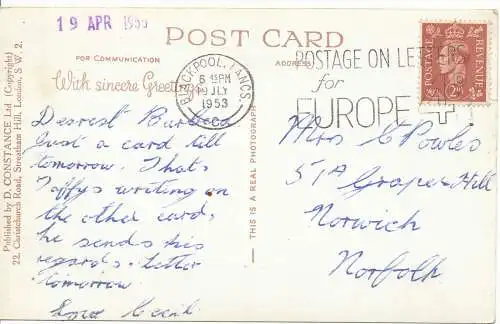 19 APR 1955
POST CARD
FOR COMMUNICATION
ADDRESS
With sincere Greetings
BLACKPOOL, LANCS.
6 15PM
9 JLY
1953
POSTAGE ON LET
for
EUROPE
POSTAGE
REVENUE
Dearest Barbara
Just a card till
tomorrow. Thats
Taffys writing on
the other card,
he sends his
regards. letter
tomorrow
Love Cecil
Mrs C Powles
51A Grapes Hill
Norwich
Norfolk
THIS IS A REAL PHOTOGRAPH
Published by D. CONSTANCE Ltd. (Copyright)
22, Christchurch Road, Streatham Hill, London, S.W.2.